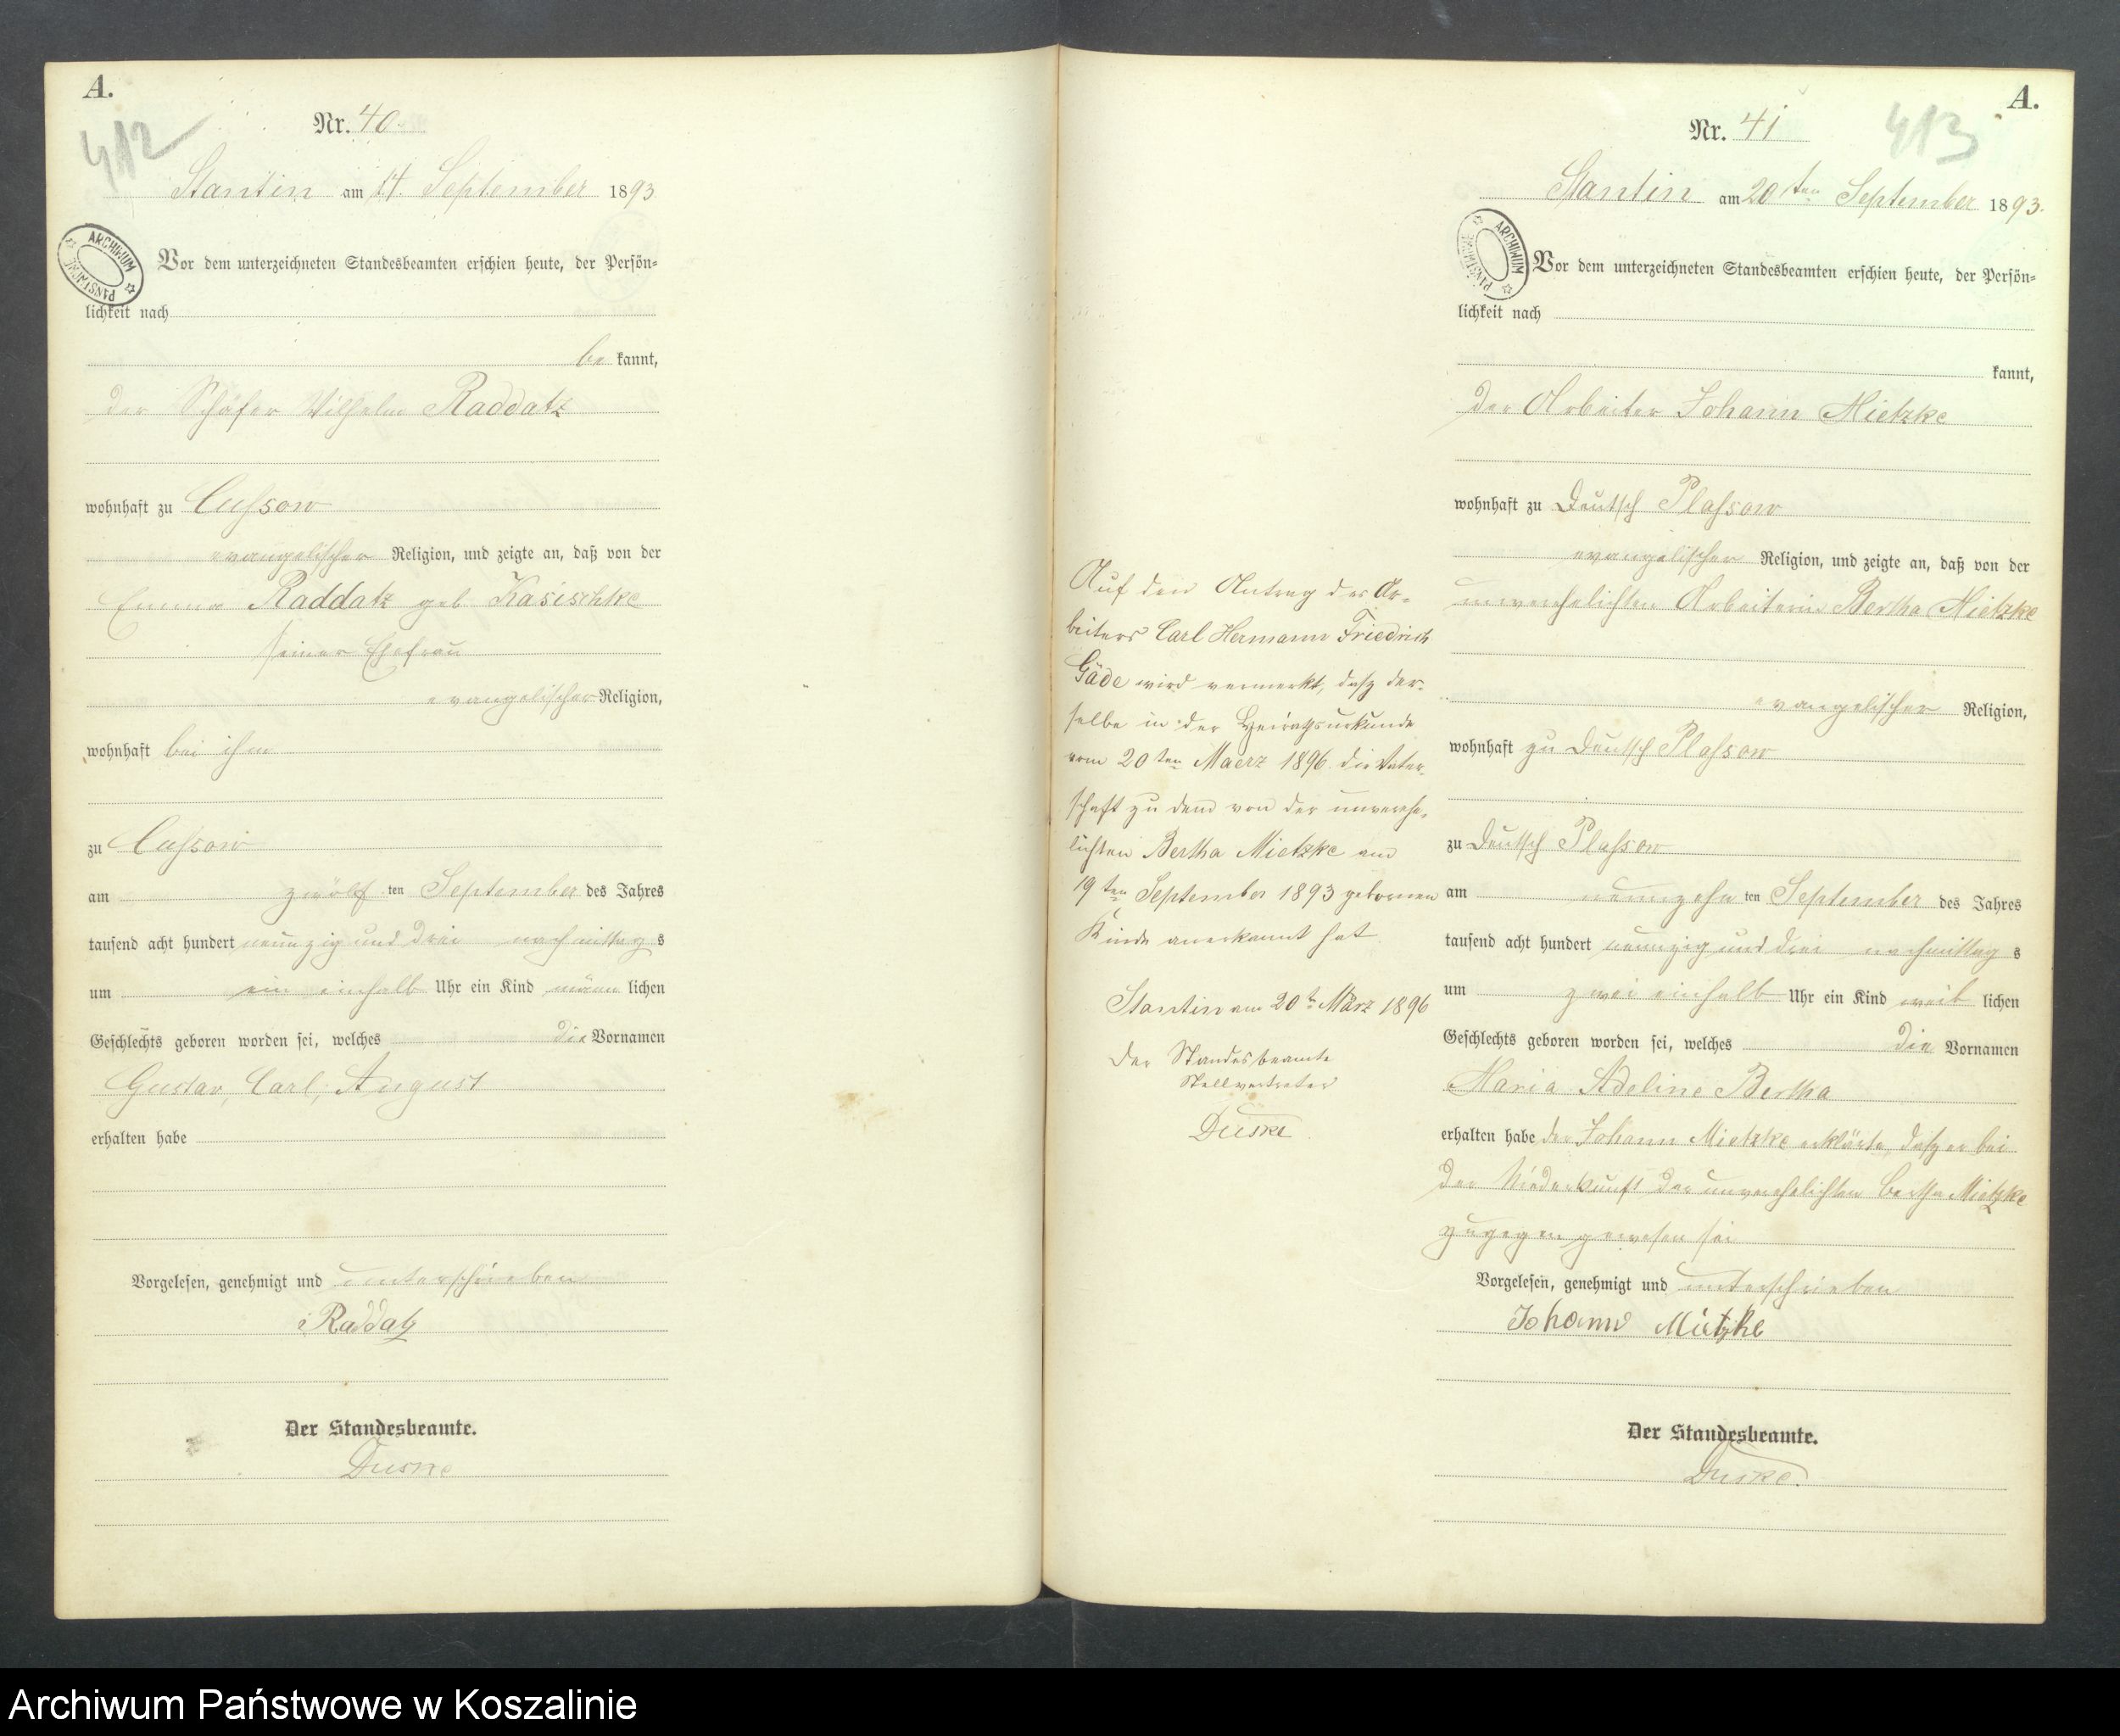 A.
412
Nr. 40.
Stantin am 14. September 1893
ARCHIWUM PAŃSTWOWE
Vor dem unterzeichneten Standesbeamten erschien heute, der Persön-
lichkeit nach
be kannt,
der Schäfer Wilhelm Raddatz
wohnhaft zu Cussow
evangelischer Religion, und zeigte an, daß von der
Emma Raddatz geb Kasischke
seiner Ehefrau
evangelischer Religion,
wohnhaft bei ihm
zu Cussow
am zwölf ten September des Jahres
tausend acht hundert neunzig und drei nachmittag s
um ein einhalb Uhr ein Kind männ lichen
Geschlechts geboren worden sei, welches die Vornamen
Gustav, Carl, August
erhalten habe
Vorgelesen, genehmigt und unterschrieben
Raddatz
Der Standesbeamte.
Duske
Auf den Antrag des Ar-
beiters Carl Hermann Friedrich
Gäde wird vermerkt, dasz der-
selbe in der Heirathsurkunde
vom 20ten Maerz 1896 die Vater-
schaft zu dem von der unverehe-
lichten Bertha Mietzke am
19ten September 1893 geborenen
Kinde anerkannt hat
Stantin am 20t März 1896
Der Standesbeamte
Stellvertreter
Duske
A.
413
Nr. 41
Stantin am 20ten September 1893.
ARCHIWUM PAŃSTWOWE
Vor dem unterzeichneten Standesbeamten erschien heute, der Persön-
lichkeit nach
kannt,
der Arbeiter Johann Mietzke
wohnhaft zu Deutsch Plassow
evangelischer Religion, und zeigte an, daß von der
unverehelichten Arbeiterin Bertha Mietzke
evangelischer Religion,
wohnhaft zu Deutsch Plassow
zu Deutsch Plassow
am neunzehn ten September des Jahres
tausend acht hundert neunzig und drei nachmittag s
um zwei einhalb Uhr ein Kind weib lichen
Geschlechts geboren worden sei, welches die Vornamen
Maria Adeline Bertha
erhalten habe der Johann Mietzke erklärte, dasz er bei
der Niederkunft der unverehelichten Bertha Mietzke
zugegen gewesen sei
Vorgelesen, genehmigt und unterschrieben
Johann Mietzke
Der Standesbeamte.
Duske.
Archiwum Państwowe w Koszalinie